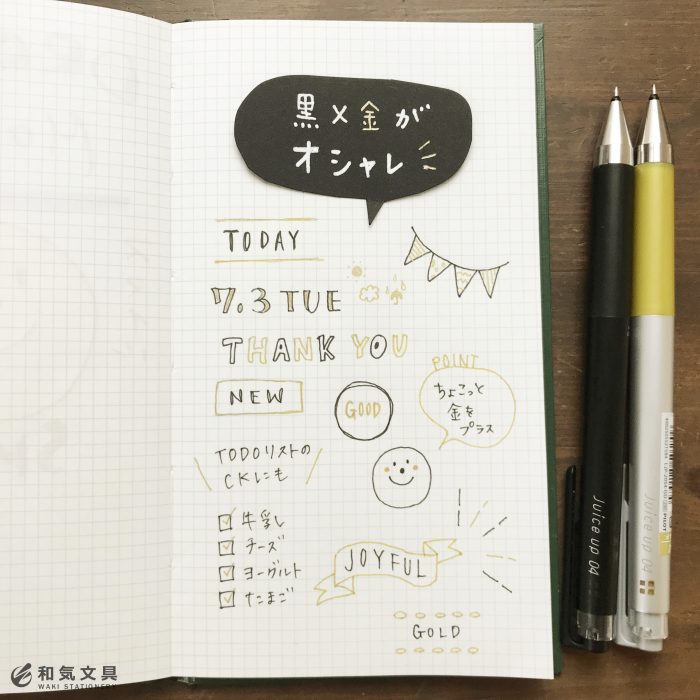 黒×金が
オシャレ
TODAY
7.3 TUE
THANK YOU
NEW
GOOD
POINT
ちょこっと
金を
プラス
TODOリストの
CKにも
牛乳
チーズ
ヨーグルト
たまご
JOYFUL
GOLD
Juice up 04
Juice up 04
PILOT
和気文具
WAKI STATIONERY